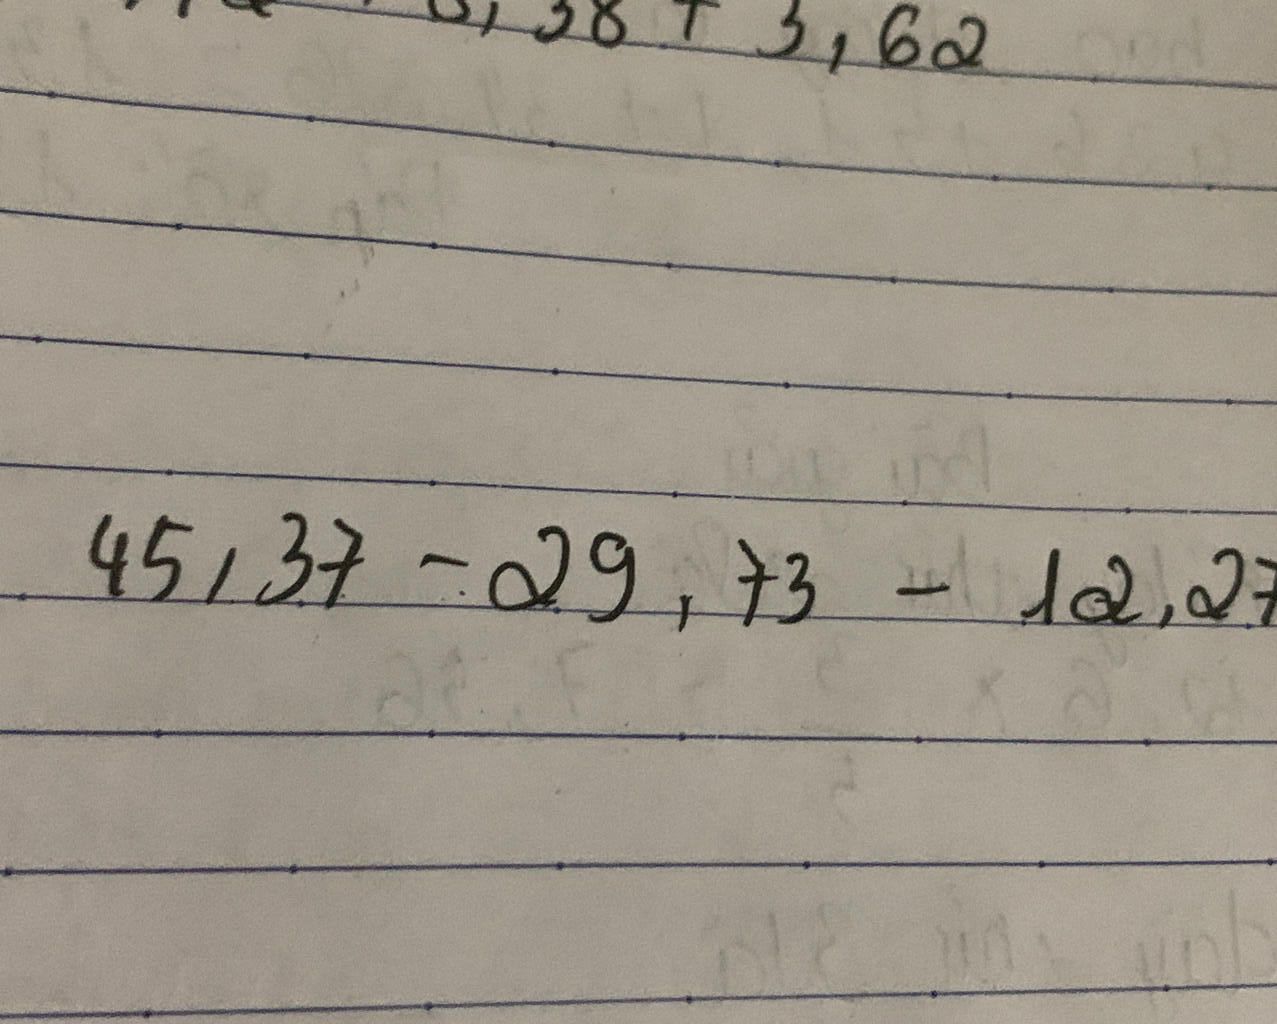 ,38 + 3,62
45,37 - 29,73 - 12,27